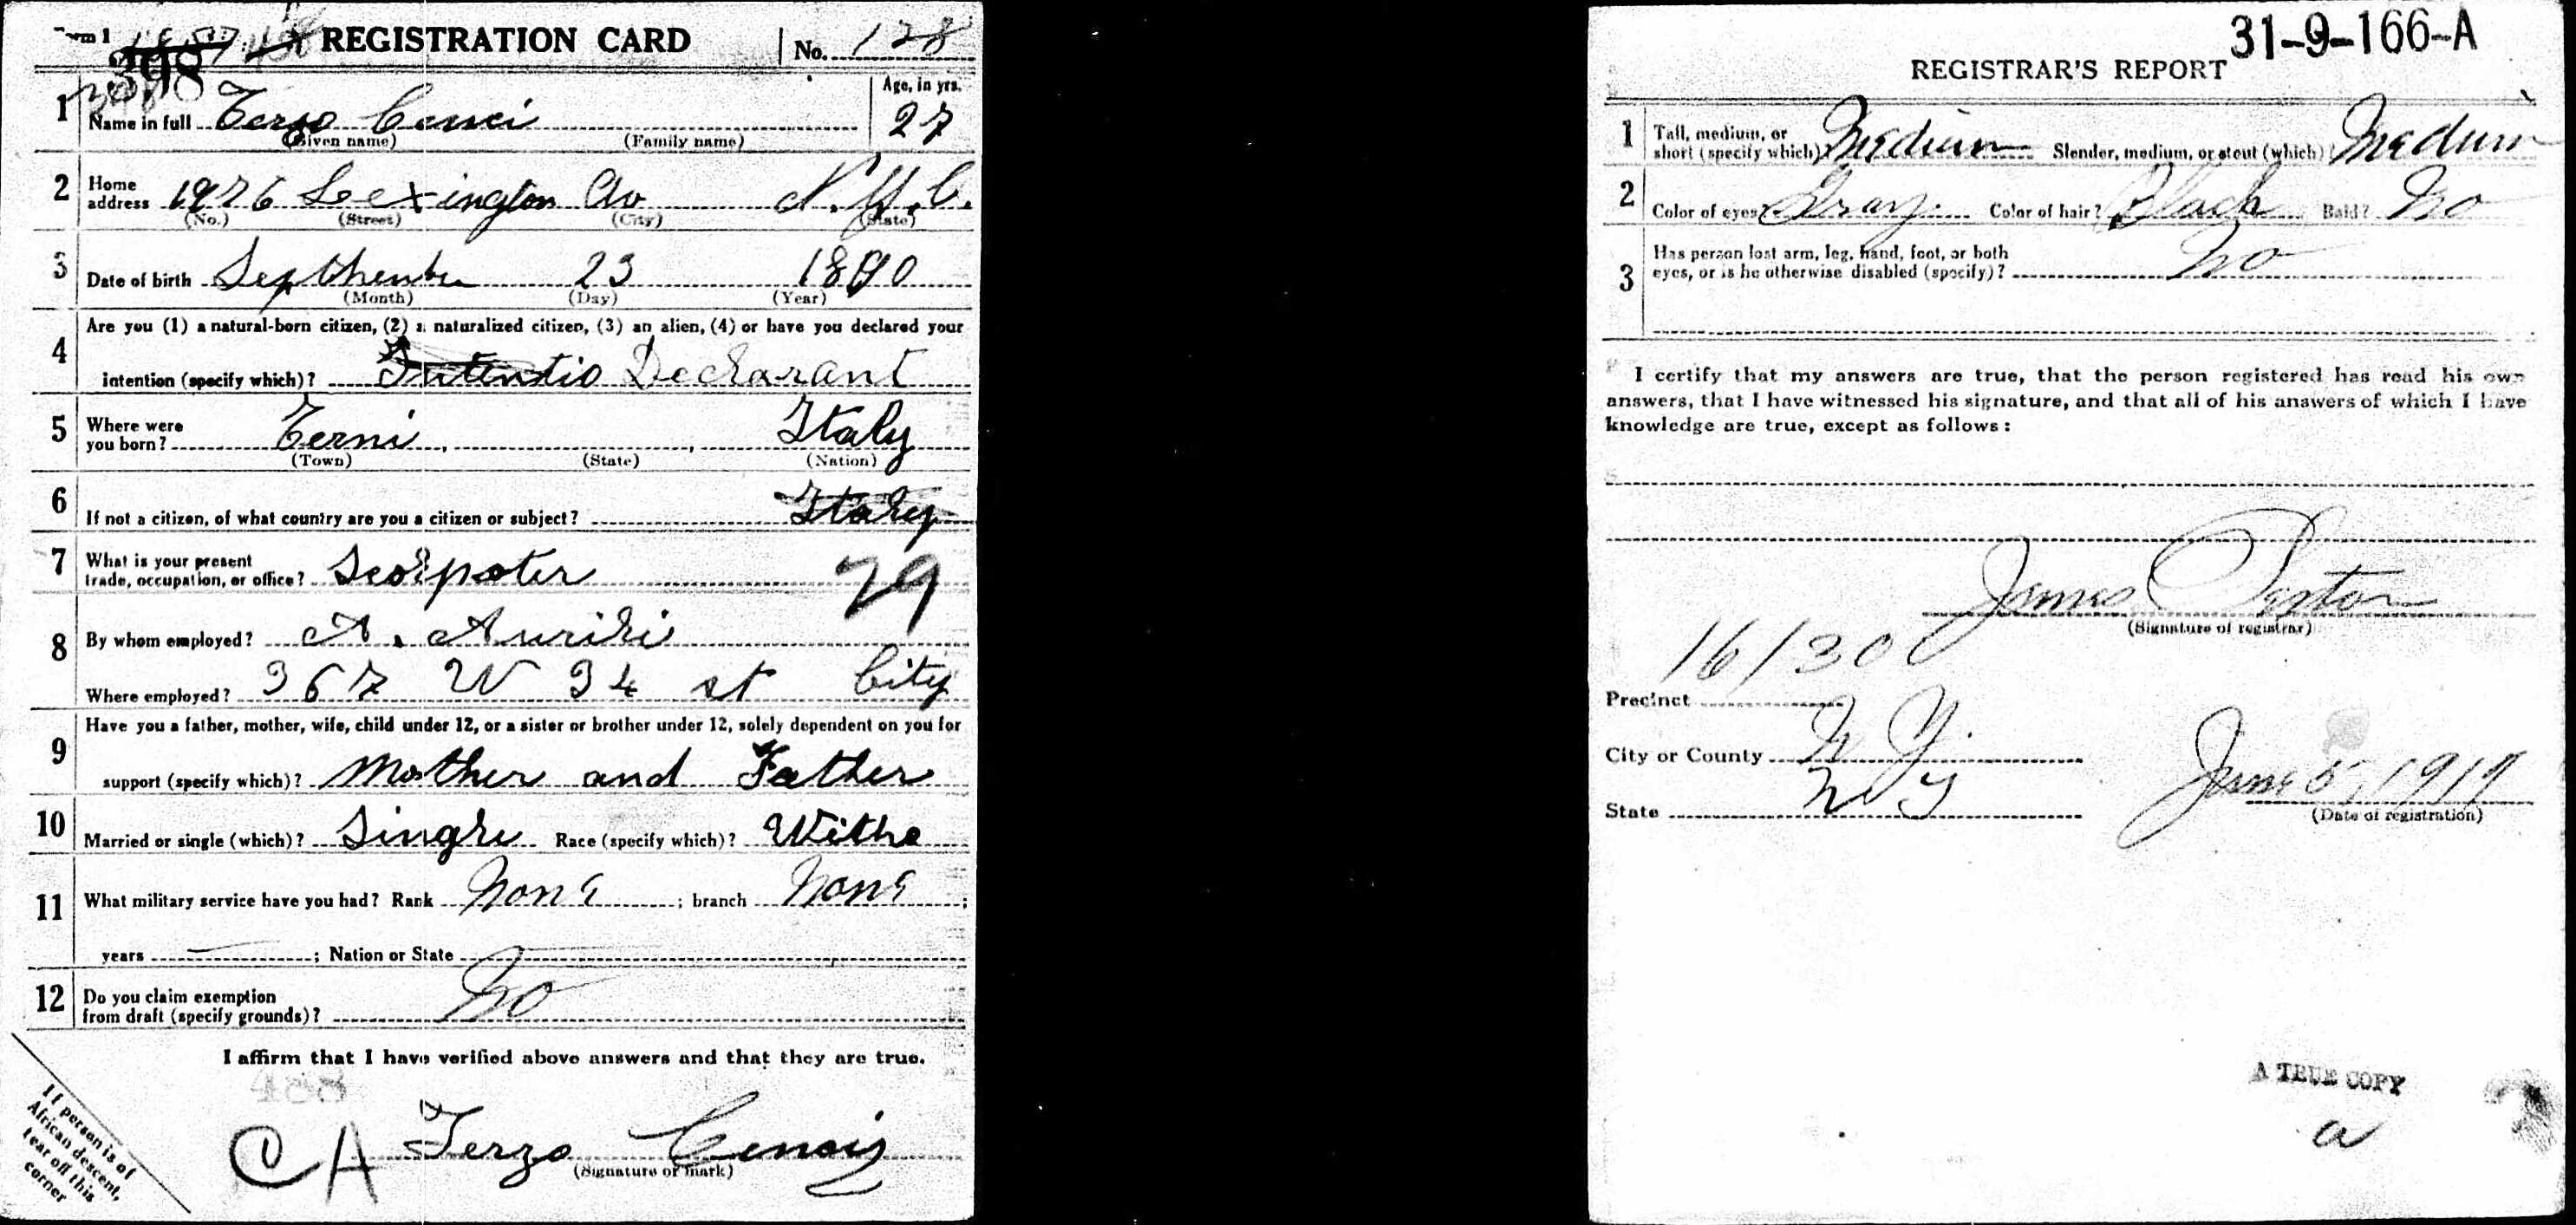 REGISTRATION CARD No. 128
398
1 Name in full Terzo Cenci Age, in yrs. 27
(Given name) (Family name)
2 Home address 1976 Lexington Av N.Y.C.
(No.) (Street) (City) (State)
3 Date of birth Septhember 23 1890
(Month) (Day) (Year)
4 Are you (1) a natural-born citizen, (2) a naturalized citizen, (3) an alien, (4) or have you declared your
intention (specify which)? Intentio Declarant
5 Where were you born? Terni, Italy
(Town) (State) (Nation)
6 If not a citizen, of what country are you a citizen or subject? Italy
7 What is your present trade, occupation, or office? 29
8 By whom employed? A.
Where employed? 367 W 34 st City
9 Have you a father, mother, wife, child under 12, or a sister or brother under 12, solely dependent on you for
support (specify which)? Mother and Father
10 Married or single (which)? Single Race (specify which)? Withe
11 What military service have you had? Rank None ; branch None ;
years ; Nation or State
12 Do you claim exemption from draft (specify grounds)? No
I affirm that I have verified above answers and that they are true.
CA Terzo Cenci
(Signature or mark)
If person is of
African descent,
tear off this
corner
31-9-166-A
REGISTRAR'S REPORT
1 Tall, medium, or short (specify which)? Medium Slender, medium, or stout (which)? Medium
2 Color of eyes? Gray Color of hair? Black Bald? No
3 Has person lost arm, leg, hand, foot, or both
eyes, or is he otherwise disabled (specify)? No
I certify that my answers are true, that the person registered has read his own
answers, that I have witnessed his signature, and that all of his answers of which I have
knowledge are true, except as follows:
James
(Signature of registrar)
16/30
Precinct
City or County N Y.
State N Y June 5, 1917
(Date of registration)
A TRUE COPY
a